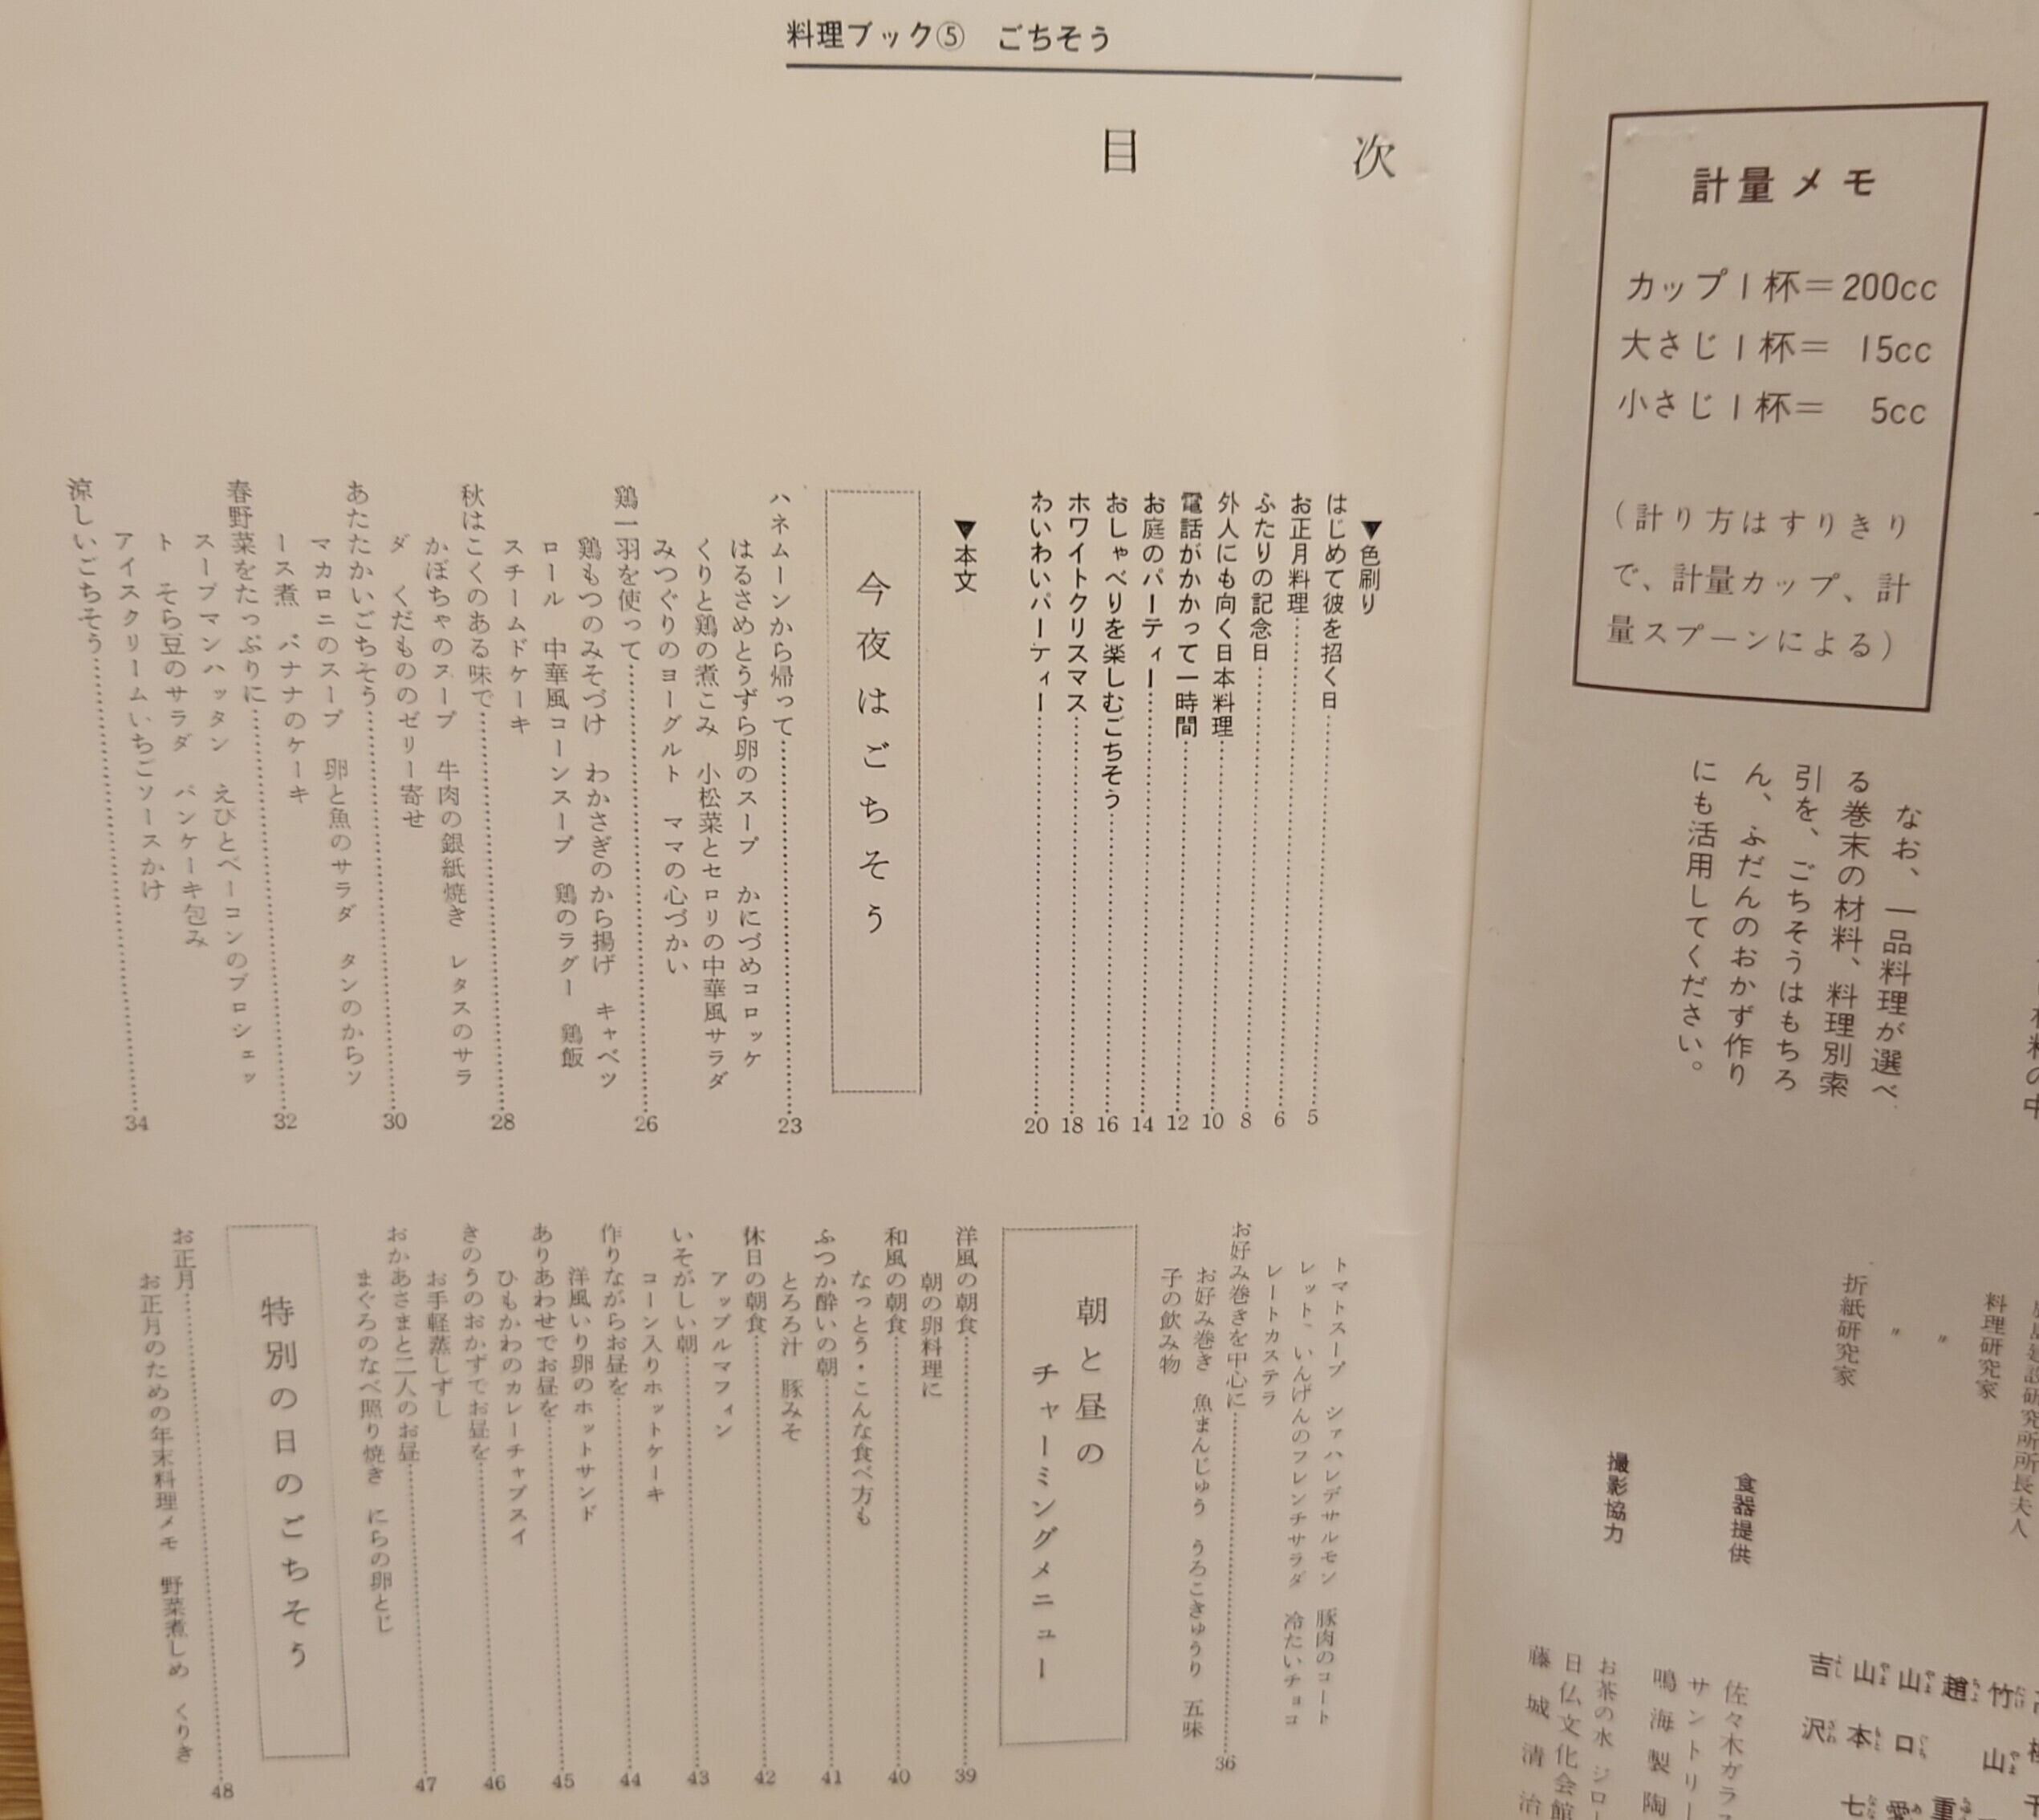 料理ブック⑤　ごちそう
目次
▼色刷り
はじめて彼を招く日……5
お正月料理……6
ふたりの記念日……8
外人にも向く日本料理……10
電話がかかって一時間……12
お庭のパーティー……14
おしゃべりを楽しむごちそう……16
ホワイトクリスマス……18
わいわいパーティー……20
▼本文
今夜はごちそう
ハネムーンから帰って……23
はるさめとうずら卵のスープ　かにづめコロッケ
くりと鶏の煮こみ　小松菜とセロリの中華風サラダ
みつぐりのヨーグルト　ママの心づかい
鶏一羽を使って……26
鶏もつのみそづけ　わかさぎのから揚げ　キャベツ
ロール　中華風コーンスープ　鶏のラグー　鶏飯
スチームドケーキ
秋はこくのある味で……28
かぼちゃのスープ　牛肉の銀紙焼き　レタスのサラ
ダ　くだもののゼリー寄せ
あたたかいごちそう……30
マカロニのスープ　卵と魚のサラダ　タンのからソ
ース煮　バナナのケーキ
春野菜をたっぷりに……32
スープマンハッタン　えびとベーコンのブロシェッ
ト　そら豆のサラダ　パンケーキ包み
アイスクリームいちごソースかけ
涼しいごちそう……34
トマトスープ　シァハレデサルモン　豚肉のコート
レット、いんげんのフレンチサラダ　冷たいチョコ
レートカステラ
お好み巻きを中心に……36
お好み巻き　魚まんじゅう　うろこきゅうり　五味
子の飲み物
朝と昼の
チャーミングメニュー
洋風の朝食……39
朝の卵料理に
和風の朝食……40
なっとう・こんな食べ方も
ふつか酔いの朝……41
とろろ汁　豚みそ
休日の朝食……42
アップルマフィン
いそがしい朝……43
コーン入りホットケーキ
作りながらお昼を……44
洋風いり卵のホットサンド
ありあわせでお昼を……45
ひもかわのカレーチャプスイ
きのうのおかずでお昼を……46
お手軽蒸しずし
おかあさまと二人のお昼……47
まぐろのなべ照り焼き　にらの卵とじ
特別の日のごちそう
お正月……48
お正月のための年末料理メモ　野菜煮しめ　くりき
計量メモ
カップ1杯＝200cc
大さじ1杯＝ 15cc
小さじ1杯＝ 5cc
（計り方はすりきり
で、計量カップ、計
量スプーンによる）
なお、一品料理が選べ
る巻末の材料、料理別索
引を、ごちそうはもちろ
ん、ふだんのおかず作り
にも活用してください。
研究所所長夫人
料理研究家
〃
〃
折紙研究家
竹山
趙
山口
山本
吉沢
食器提供
佐々木ガラス
サントリー
鳴海製陶
撮影協力
お茶の水　ジロー
日仏文化会館
藤城清治